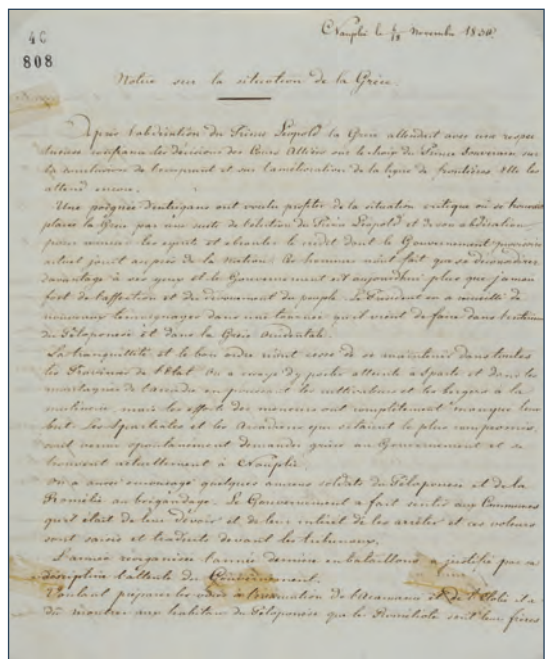 Nauplie le 6/18 Novembre 1830.
46
808
Notice sur la situation de la Grèce.
Après l'abdication du Prince Léopold la Grèce attendit avec une respec
tueuse confiance les décisions des Cours Alliées sur le choix du Prince Souverain sur
la conclusion de l'emprunt et sur l'amélioration de la ligne de frontières. Elle les
attend encore.
Une poignée d'intrigans ont voulu profiter de la situation critique où se trouvait
placée la Grèce par une suite de l'élection du Prince Léopold et de son abdication
pour remuer les esprits et ébranler le crédit dont le Gouvernement provisoire
actuel jouit auprès de la Nation. Ces hommes n'ont fait que se déconsidérer
davantage à ses yeux et le Gouvernement est aujourd'hui plus que jamais
fort de l'affection et du dévouement du peuple. Le Président en a recueilli de
nouveaux témoignages dans une tournée qu'il vient de faire dans l'intérieur
du Péloponèse et dans la Grèce Occidentale.
La tranquillité et le bon ordre n'ont cessé de se maintenir dans toutes
les Provinces de l'Etat. On a essayé d'y porter atteinte à Sparte et dans les
montagnes de l'Arcadie en poussant les cultivateurs et les bergers à la
mutinerie, mais les efforts des meneurs ont complètement manqué leur
but. Les Spartiates et les Arcadiens qui s'étaient le plus compromis,
sont venus spontanément demander grâce au Gouvernement et se
trouvent actuellement à Nauplie.
On a aussi encouragé quelques anciens soldats du Péloponèse et de la
Romélie au brigandage. Le Gouvernement a fait sentir aux Communes
qu'il était de leur devoir et de leur intérêt de les arrêter et ces voleurs
sont saisis et traduits devant les tribunaux.
L'armée réorganisée l'année dernière en bataillons a justifié par sa
discipline l'attente du Gouvernement.
Voulant préparer les voies à l'évacuation de l'Acarnanie et de l'Etolie et a
dû montrer aux habitans du Péloponèse que les Roméliotes sont leurs frères